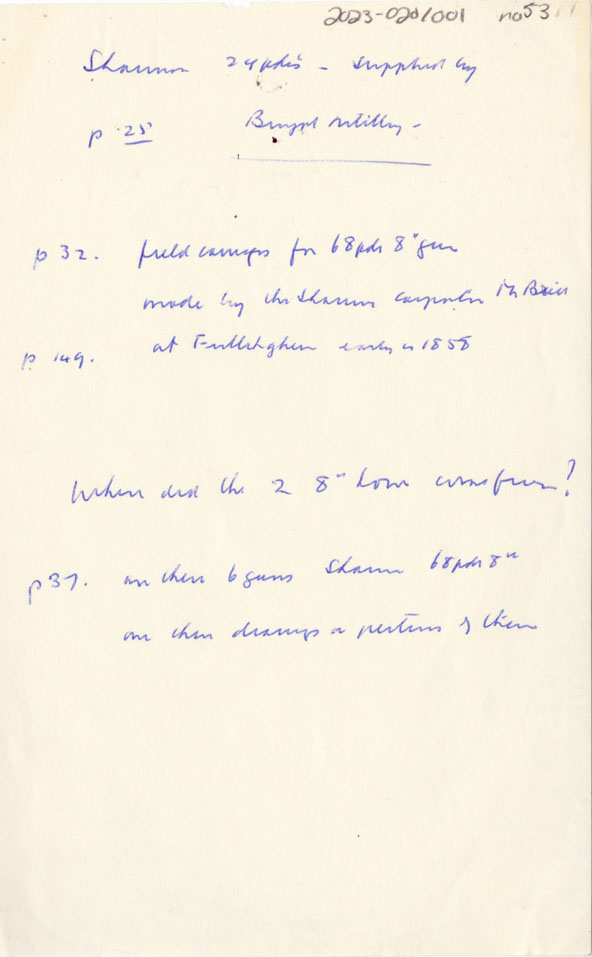 2023-020/001 no 53
Shannon 24pdrs - supplied by
p 25 Bengal Artillery -
p 32. field carriages for 68pdr 8" gun
made by the Shannon carpenter Mr
p 149. at early in 1858
Where did the 2 8" how come from?
p 37. are these 6 guns Shannon 68pdr 8"
are there drawings or pictures of them